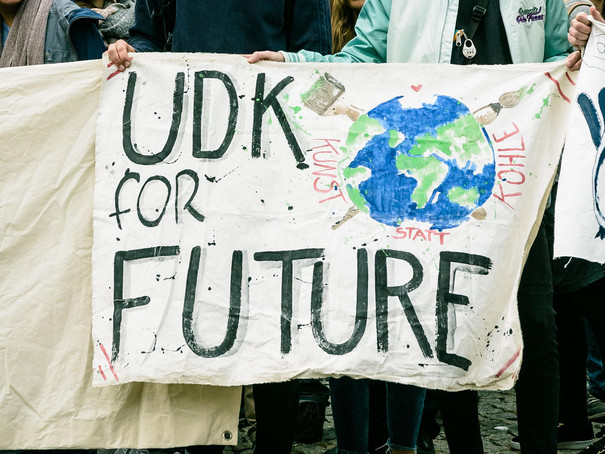 UDK
FOR
FUTURE
KUNST
STATT
KOHLE